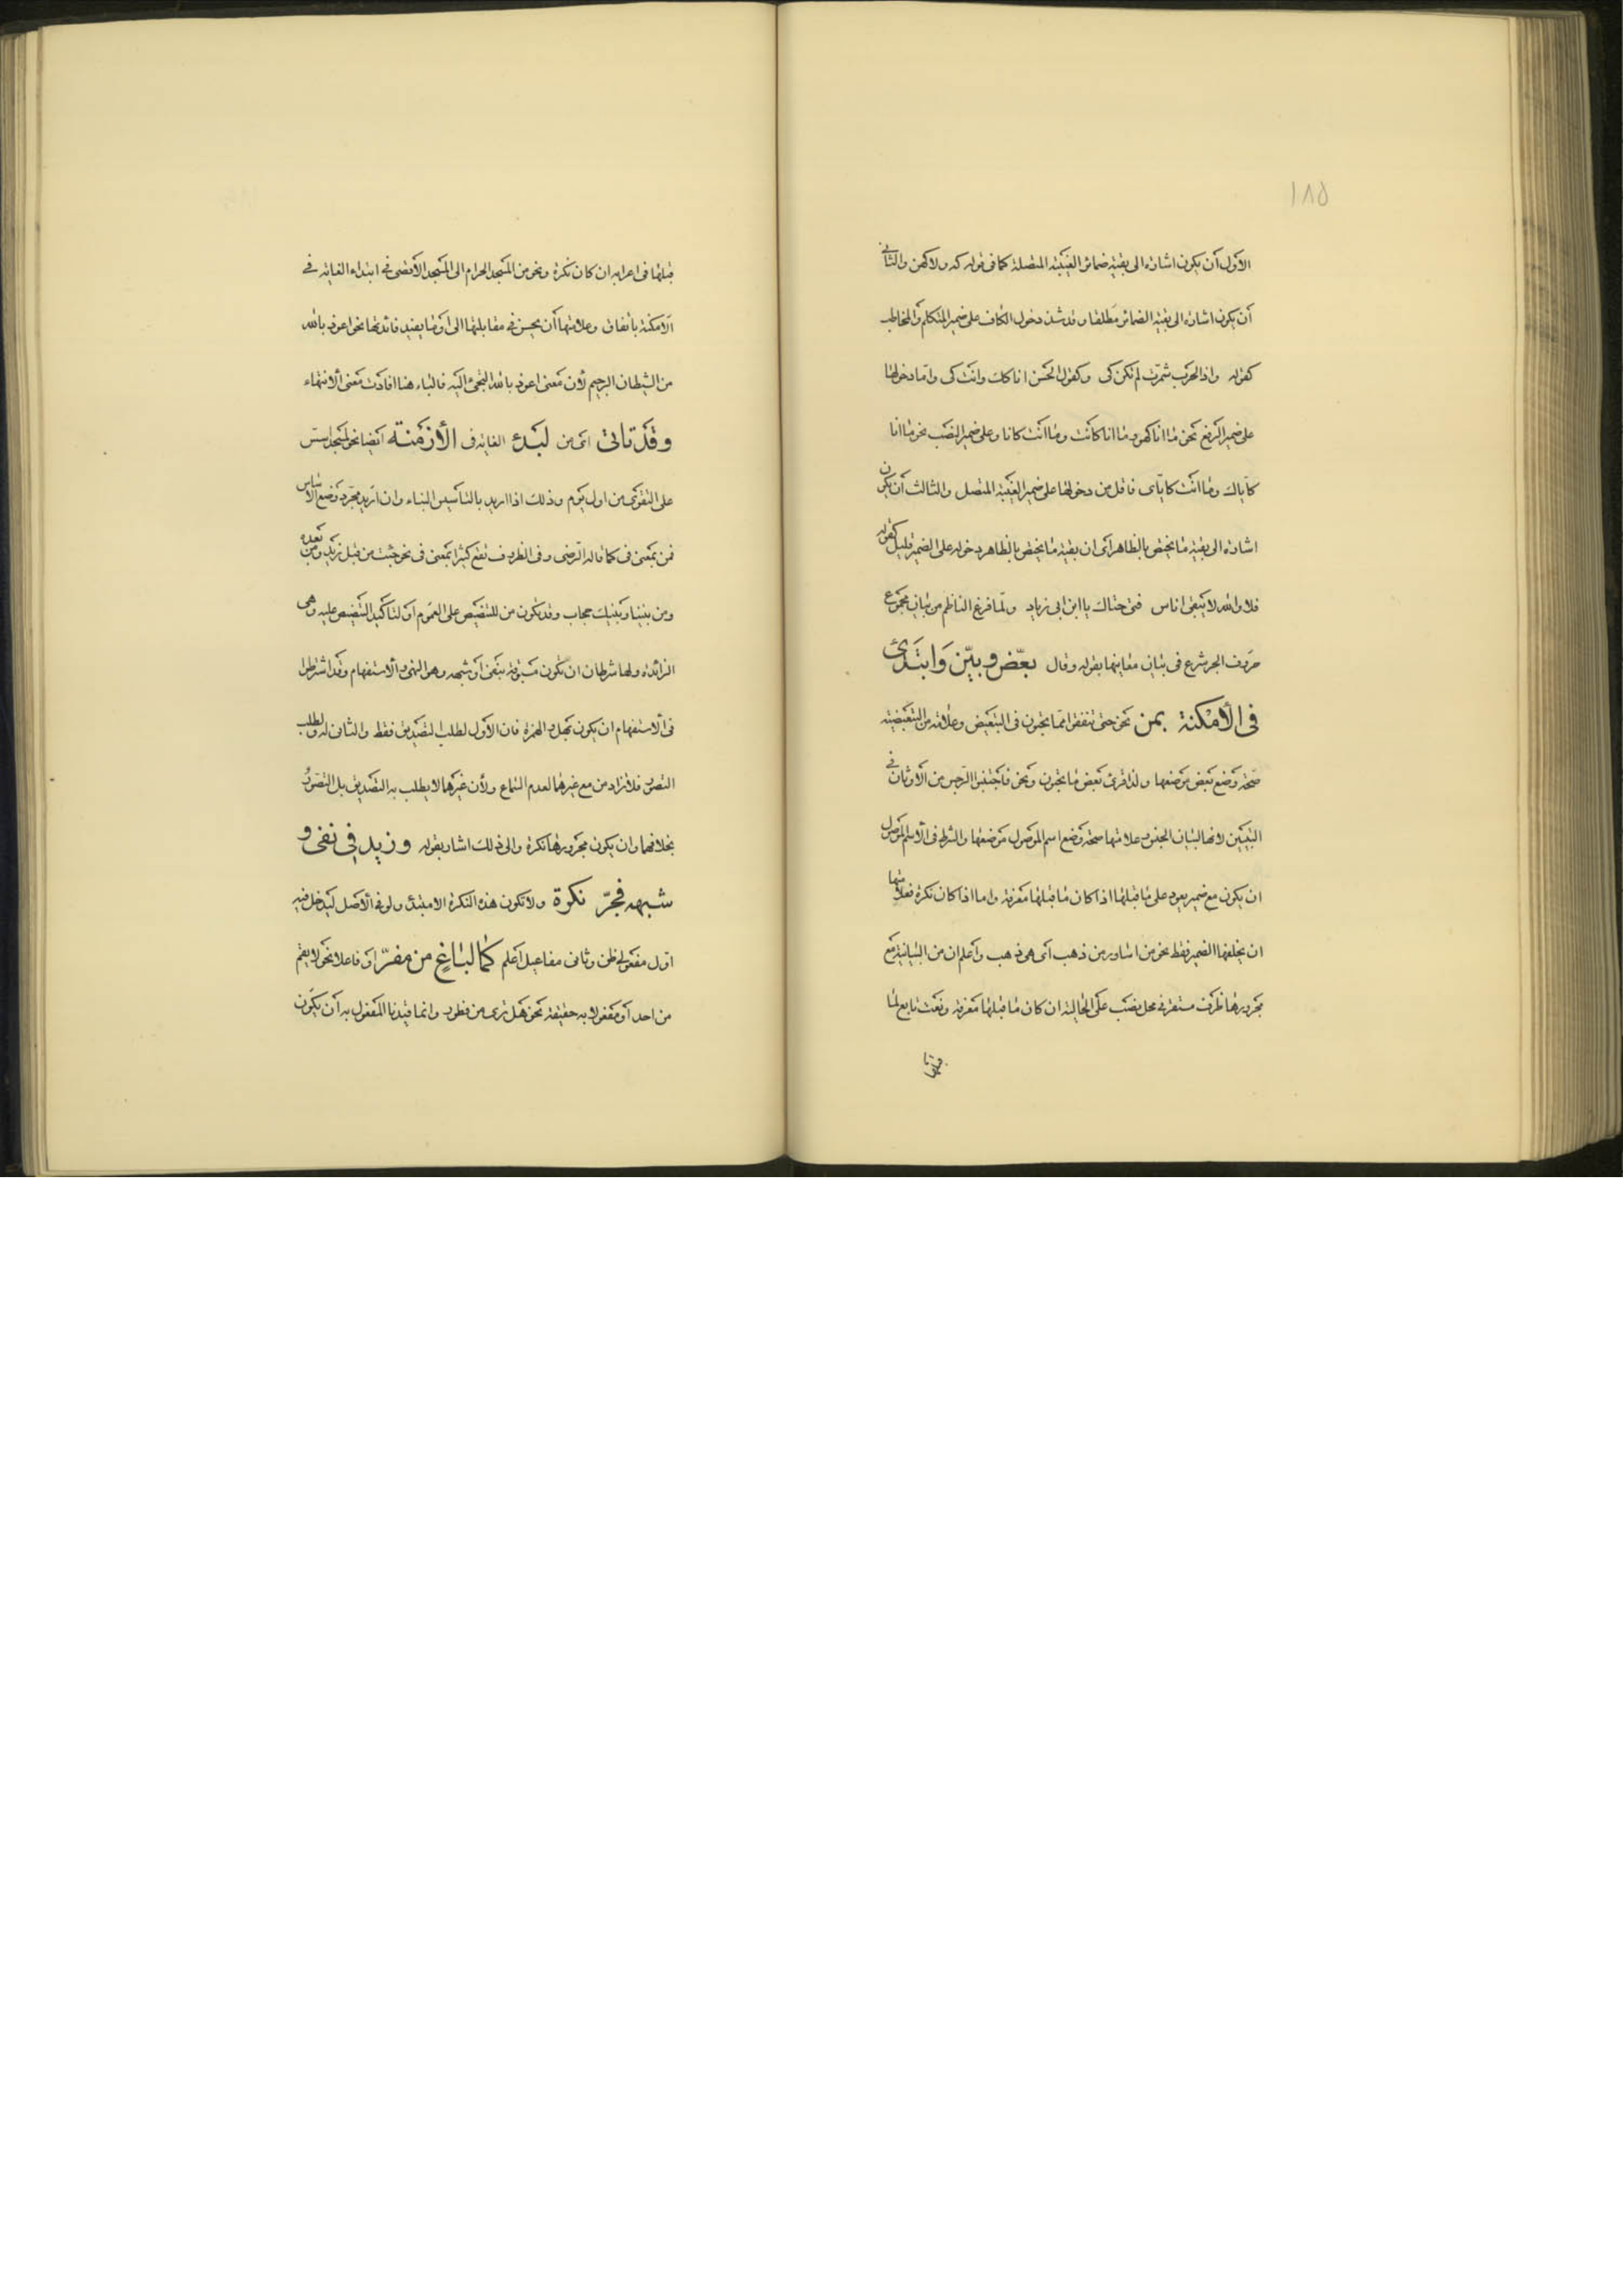 ١٨٥
الاول أن يكون اشارة الى بقية ضمائر الغيبة المتصلة كما فى قوله كه ولا كهن والثانى
أن يكون اشارة الى بقية الضمائر مطلقا وقد شذ دخول الكاف على ضمير المتكلم والمخاطب
كقوله واذا الحرب شمرت لم تكن كى وكقول الحسن انا كك وانت كى واما دخولها
على ضمير الرفع نحو ما انا كهو وما انا كانت وما انت كانا وعلى ضمير النصب نحو ما انا
كاياك وما انت كاياى فاقل من دخولها على ضمير الغيبة المتصل والثالث أن يكون
اشارة الى بقية ما يختص بالظاهر أى ان بقية ما يختص بالظاهر دخوله على الضمير قليل كقوله
فلا والله لا يبقى اناس فتى حتاك يا ابن ابى زياد ولما فرغ الناظم من بيان مجموع
حروف الجر شرع فى بيان معانيها بقوله وقال بعّض وبيّن وابتدئ
فى الأمكنة بمن نحو حتى تنفقوا مما تحبون فى التبعيض وعلامة من التبعيضية
صحة وضع بعض موضعها ولذا قرئ بعض ما تحبون ونحو فاجتنبوا الرجس من الاوثان فى
التبيين لانها لبيان الجنس وعلامتها صحة وضع اسم الموصول موضعها والشرط فى الاسم الموصول
ان يكون مع ضمير يعود على ما قبلها اذا كان ما قبلها معرفة واما اذا كان نكرة فعلامتها
ان يخلفها الضمير فقط نحو من اساور من ذهب أى هى ذهب واعلم ان من البيانية مع
مجرورها ظرف مستقر فى محل نصب على الحالية ان كان ما قبلها معرفة ونعت تابع لما
قبلها
قبلها فى اعرابه ان كان نكرة ونحو من المسجد الحرام الى المسجد الأقصى فى ابتداء الغاية فى
الامكنة باتفاق وعلامتها أن يحسن فى مقابلتها الى او ما يفيد فائدتها نحو اعوذ بالله
من الشيطان الرجيم لأن معنى اعوذ بالله التجئ اليه فالباء هنا افادت معنى الانتهاء
وقد تاتى اى من لبدء الغاية فى الأزمنة ايضا نحو لمسجد اسس
على التقوى من اول يوم وذلك اذا اريد بالتأسيس البناء وان اريد مجرد وضع الاساس
فمن بمعنى فى كما قاله الرضى وفى الظروف تقع كثيرا بمعنى فى نحو جئت من قبل زيد ومن بعده
ومن بيننا وبينك حجاب وقد تكون من للتنصيص على العموم او لتاكيد التنصيص عليه وهى
الزائدة ولها شرطان ان تكون مسبوقة بنفى أو شبهه وهو النهى والاستفهام وقد اشترطوا
فى الاستفهام ان يكون بهل والهمزة فان الاول لطلب التصديق فقط والثانى له ولطلب
التصور فلا تزاد من مع غيرهما لعدم السماع ولأن غيرهما لا يطلب به التصديق بل التصور
بخلافهما وان يكون مجرورها نكرة والى ذلك اشار بقوله وزيد فى نفى و
شبهه فجرّ نكرة ولا تكون هذه النكرة الا مبتدئ ولو فى الاصل ليدخل فيه
اول مفعولى ظن وثانى مفاعيل اعلم كما لباغ من مفرّ او فاعلا نحو لا يقم
من احد أو مفعولا به حقيقة نحو هل ترى من فطور وانما قيدنا المفعول به أن يكون